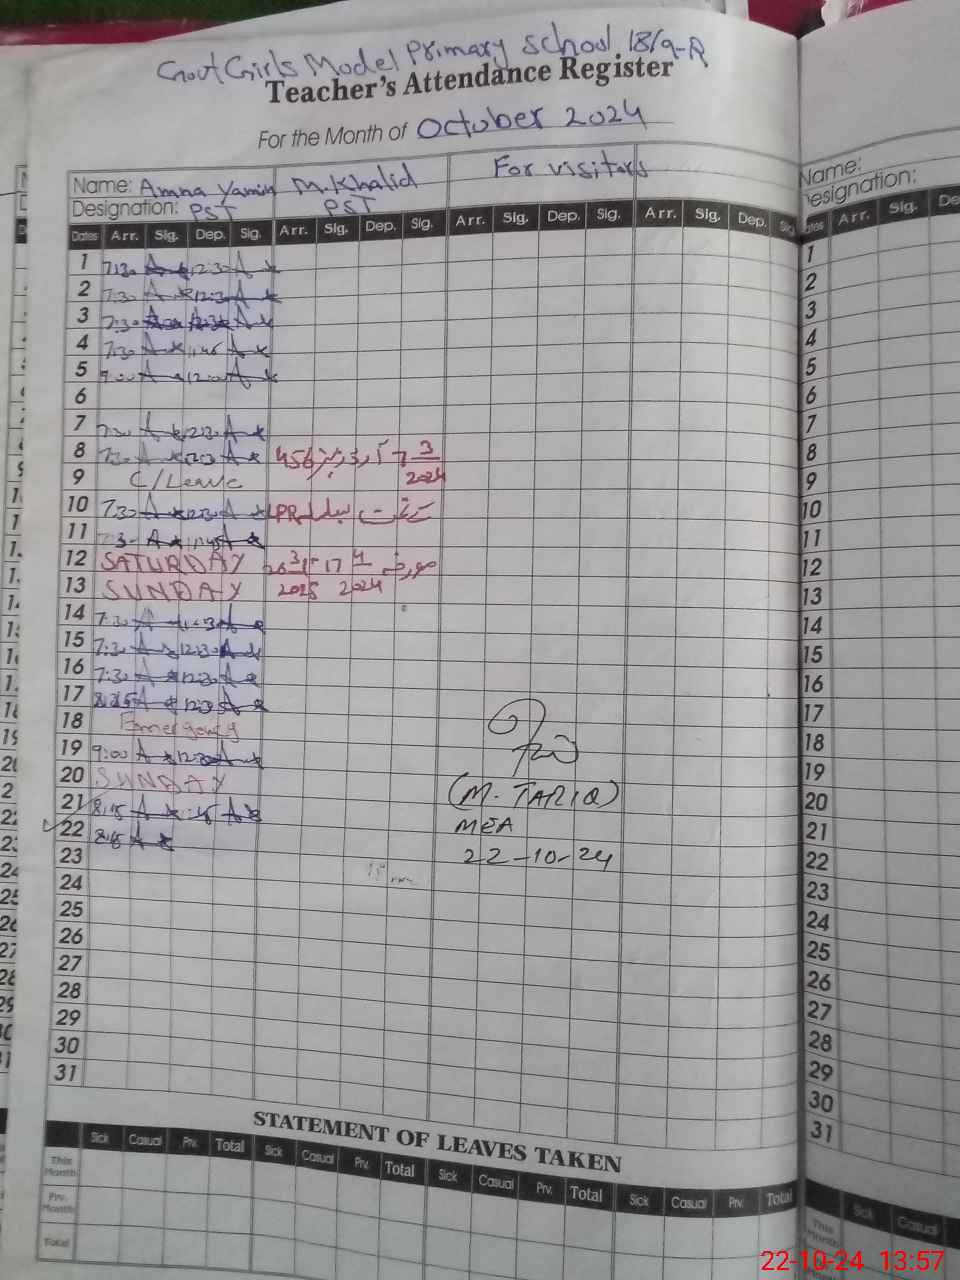 Govt Girls Model Primary School 18/9-R
Teacher's Attendance Register
For the Month of October 2024
Name: Amna Yamin M. Khalid For visitors
Designation: PST PST
Dates Arr. Sig. Dep. Sig. Arr. Sig. Dep. Sig. Arr. Sig. Dep. Sig. Arr. Sig. Dep. Sig
1 7:30 12:30
2 7:30 12:30
3 7:30 12:30
4 7:30 11:45
5 9:00 12:00
6
7 7:30 12:30
8 7:30 12:30 456 3
9 C/Leave 2024
10 7:30 12:30 LPR
11 7:30 11:45
12 SATURDAY مورخہ 17 4
13 SUNDAY 2025 2024
14 7:30
15 7:30 12:30
16 7:30 12:30
17 8:25 12:30
18 Emergency
19 9:00 12:30
20 SUNDAY
21 8:15
(M. TARIQ)
22 8:15
MEA
23
22-10-24
24
25
26
27
28
29
30
31
STATEMENT OF LEAVES TAKEN
Sick Casual Prv. Total Sick Casual Prv. Total Sick Casual Prv. Total Sick Casual Prv. Total
This Month
Prv. Month
Total
Name:
esignation:
ates Arr. Sig. De
1
2
3
4
5
6
7
8
9
10
11
12
13
14
15
16
17
18
19
20
21
22
23
24
25
26
27
28
29
30
31
Sick Casual
This
Month
22-10-24 13:57